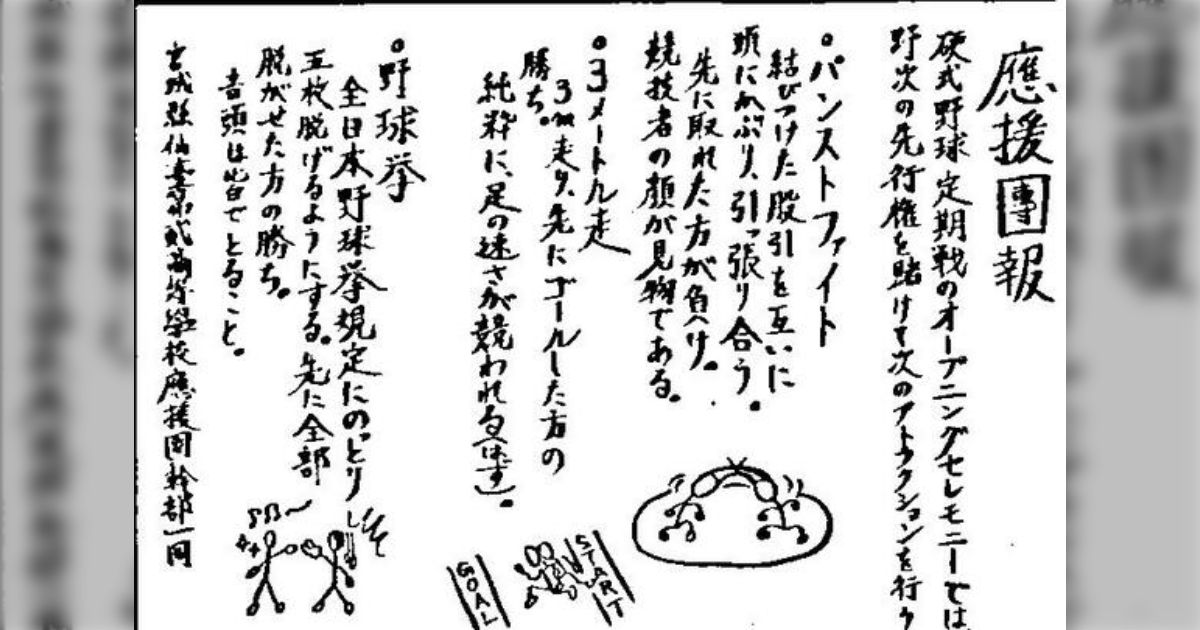 應援團報
硬式野球定期戦のオープニングセレモニーでは
野次の先行権を賭けて次のアトラクションを行う
・パンストファイト
結びつけた股引を互いに
頭にかぶり、引っ張り合う。
先に取れた方が負け。
競技者の顔が見物である。
・3メートル走
3m走り、先にゴールした方の
勝ち。
純粋に、足の速さが競われる(はず)。
・野球拳
全日本野球拳規定にのっとり
五枚脱げるようにする。先に全部
脱がせた方の勝ち。
音頭は皆でとること。
宮城縣仙臺第弐高等學校應援團幹部一同
START
GOAL